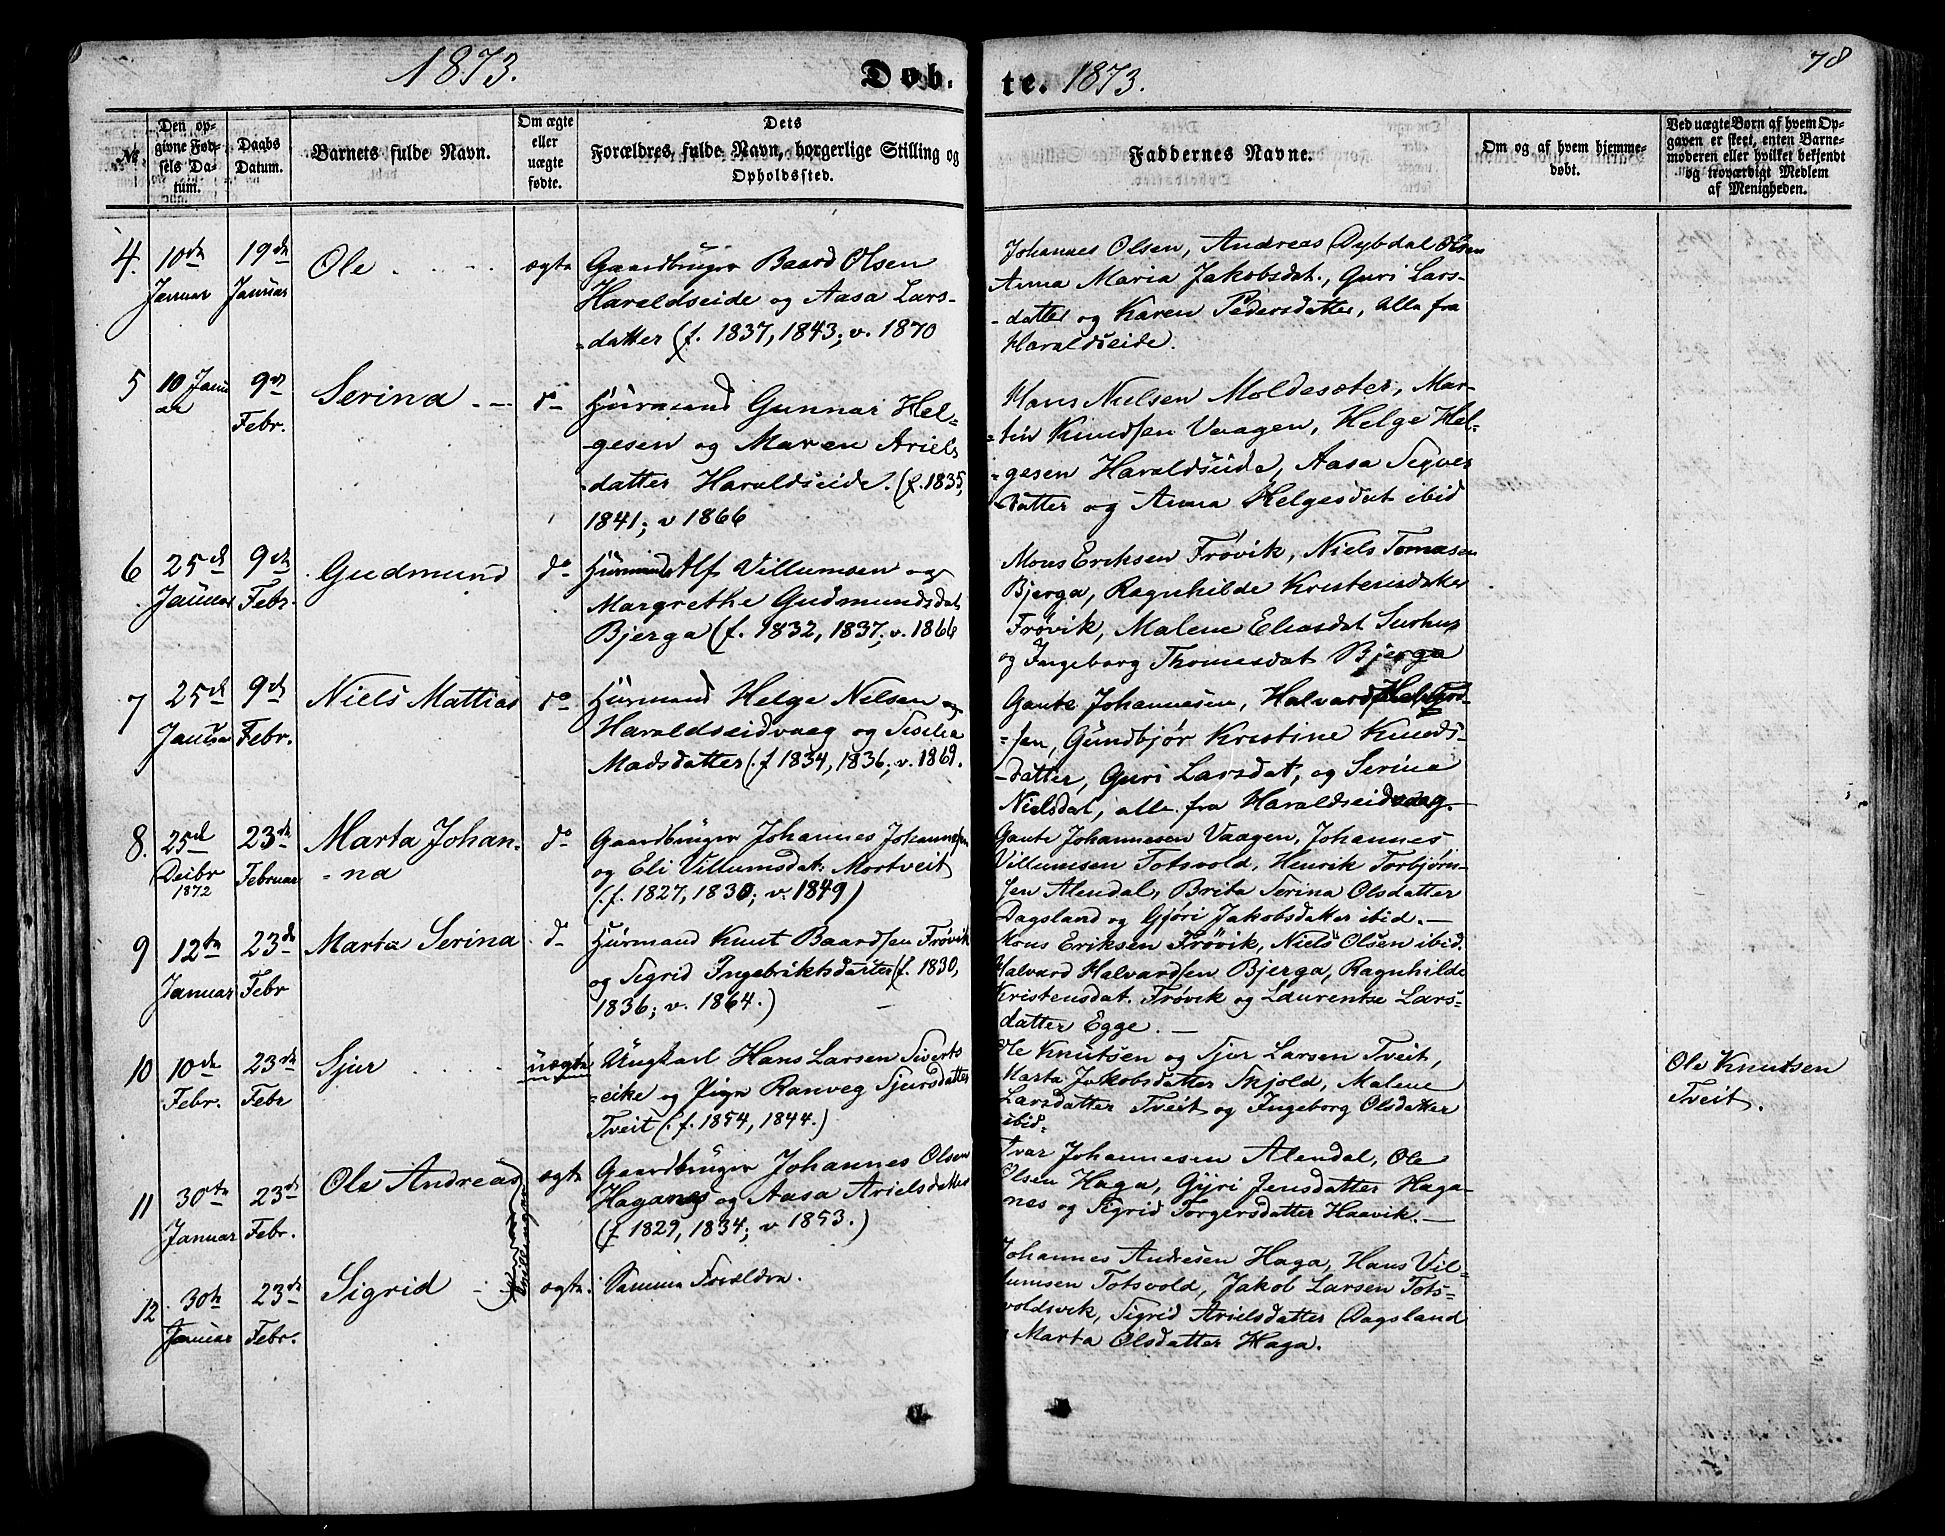 1873.
Døb-
te. 1873.
78
No.
Den op-
givne Fød-
sels Da-
tum.
Daabs
Datum.
Barnets fulde Navn.
Om ægte
eller
uægte
fødte.
Dets
Forældres fulde Navn, borgerlige Stilling og
Opholdssted.
Faddernes Navne.
Om og af hvem hjemme-
døbt.
Ved uægte Børn af hvem Op-
gaven er skeet, enten Barne-
moderen eller hvilket bekjendt
og troværdigt Medlem
af Menigheden.
4.
10de
Januar
19de
Januar
Ole
ægte
Gaardbruger Baard Olsen
Haraldseide og Aasa Lars-
-datter (f. 1837, 1843; v. 1870
Johannes Olsen, Andreas Dybdal Olsen
Anna Maria Jakobsdat., Guri Lars-
-datter og Karen Pedersdatter, alle fra
Haraldseide.
5
10 Janu
ar
9de
Febr.
Serina
do
Huusmand Gunnar Hel-
-gesen og Maren Ariels
-datter Haraldseide. (f. 1835,
1841; v 1866
Hans Nielsen Moldesæter, Mar-
-tin Knudsen Vaagen, Helge Hel-
-gesen Haraldseide, Aasa
datter og Anna Helgesdat ibid
6
25de
Januar
9de
Febr.
Gudmund
do
Huusmand Alf Villumsen og
Margrethe Gudmundsdat
Bjerga (f. 1832, 1837; v. 1866
Mons Eriksen Frøvik, Niels Tomasen
Bjerga, Ragnhilde Kristensdatter
Frøvik, Malene Eliasdat Surhus
og Ingeborg Thomesdat Bjerga
7
25de
Januar
9de
Febr.
Niels Mattias
do
Huusmand Helge Nelsen og
Haraldseidvaag og Sesilia
Madsdatter (f 1834, 1836; v. 1869.
Gaute Johannesen, Halvard
-sen, Gundbjør Kristine Knuds-
-datter, Guri Larsdat, og Serina
Nielsdat, alle fra Haraldseidvaag.
8.
25de
Decbr
1872
23de
Februar
Marta Johan-
-na
do
Gaardbruger Johannes Johannesen
og Eli Villumsdat. Mortveit
(f. 1827, 1830; v. 1849)
Gaute Johannesen Vaagen, Johannes
Villumsen Totsvold, Henrik Torbjørn-
sen Alendal, Brita Serina Olsdatter
Dagsland og Gjøri Jakobsdatter ibid.
9
12te
Januar
23de
Febr
Marta Serina
do
Huusmand Knut Baardsen Frøvik
og Sigrid Ingebriktsdatter (f. 1830,
1836; v. 1864.)
Mons Eriksen Frøvik, Niels Olsen ibid.
Halvard Halvardsen Bjerga, Ragnhilde
Kristensdat. Frøvik og Laurentse Lars-
datter Egge.
10
10de
Febr.
23de
Febr
Sjur
uægte
Ungkarl Hans Larsen Siverts
-eike og Pige Ranveg Sjursdatter
Tveit (f. 1854, 1844.)
Ole Knutsen og Sjur Larsen Tveit,
Marta Jakobsdatter Skjold, Malene
Larsdatter Tveit og Ingeborg Olsdatter
ibid.
Ole Knutsen
Tveit.
11
30te
Januar
23de
Febr.
Ole Andreas
Tvillinger
ægte
Gaardbruger Johannes Olsen
Haganes og Aasa Arielsdatter
(f 1829, 1834; v 1853.)
Ivar Johannesen Alendal, Ole
Olsen Haga, Gyri Jensdatter Haga-
nes og Sigrid Torgersdatter Haavik.
12
30te
Januar
23de
Febr.
Sigrid
ægte.
Samme Forældre.
Johannes Andresen Haga, Hans Vil-
lumsen Totsvold, Jakob Larsen Tots-
voldsvik, Sigrid Arielsdatter Dagsland
Marta Olsdatter Haga.